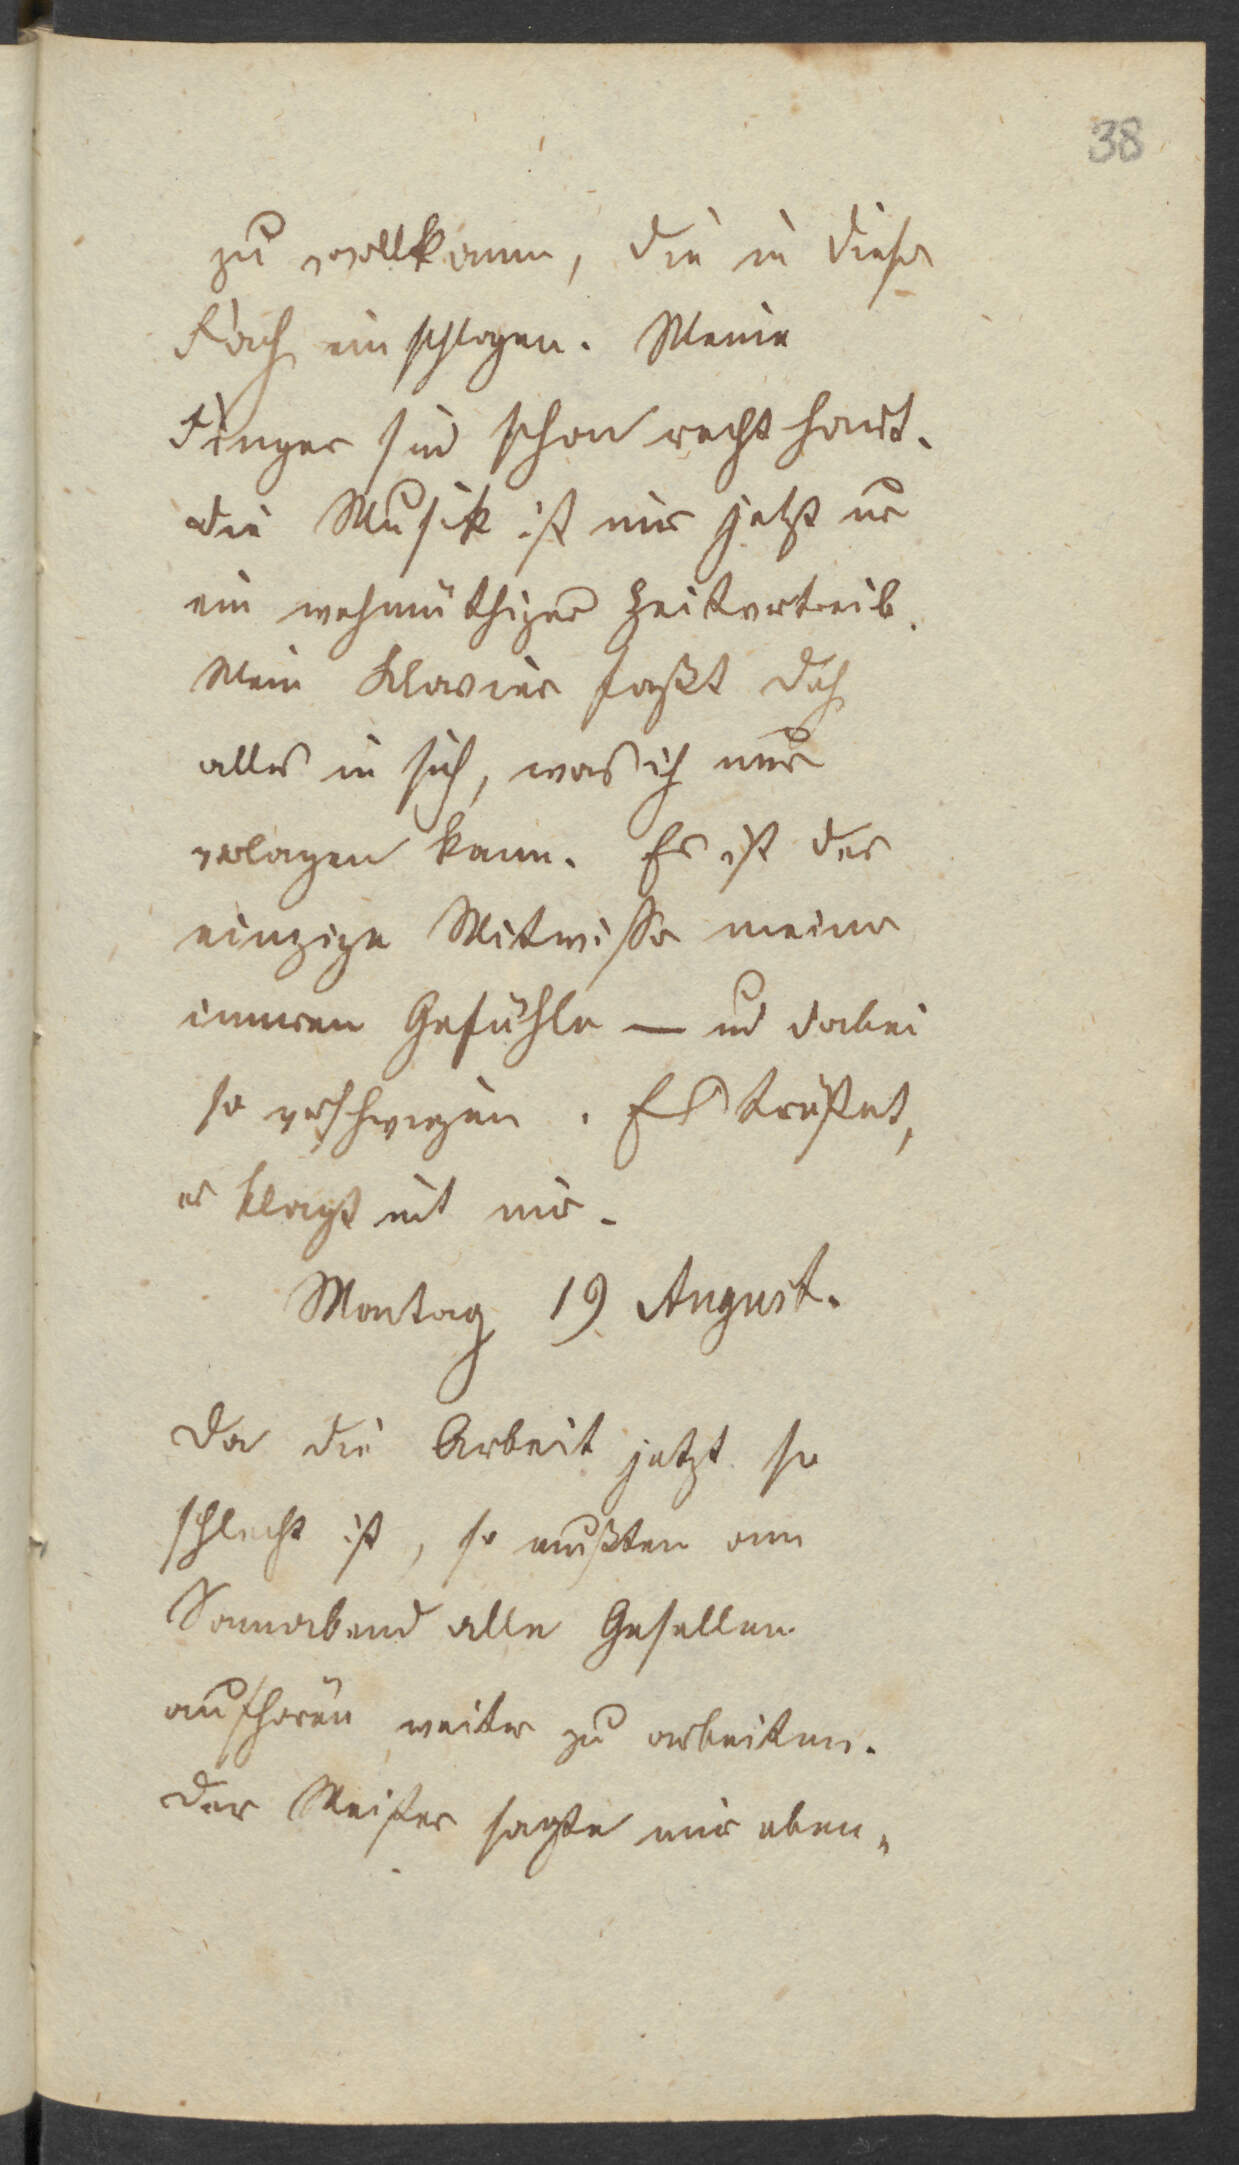 38
zu vollkomm, die in dieser
Fach einschlagen. Meine
Finger sind schon recht hardt.
die Musik ist mir jetzt nur
ein wehmüthiger Zeitvertreib.
Mein Klavier faßt doch
alles in sich, was ich nur
verlagen kann. Es ist der
einzige Mitwisser meiner
inneren Gefühle — und dabei
so verschwiegen. Es tröstet,
es klagt mit mir.
Montag 19 August.
Da die Arbeit jetzt so
schlecht ist, so mußten am
Sonnabend alle Gesellen
aufhören weiter zu arbeiten.
Der Meister sagte mir eben„